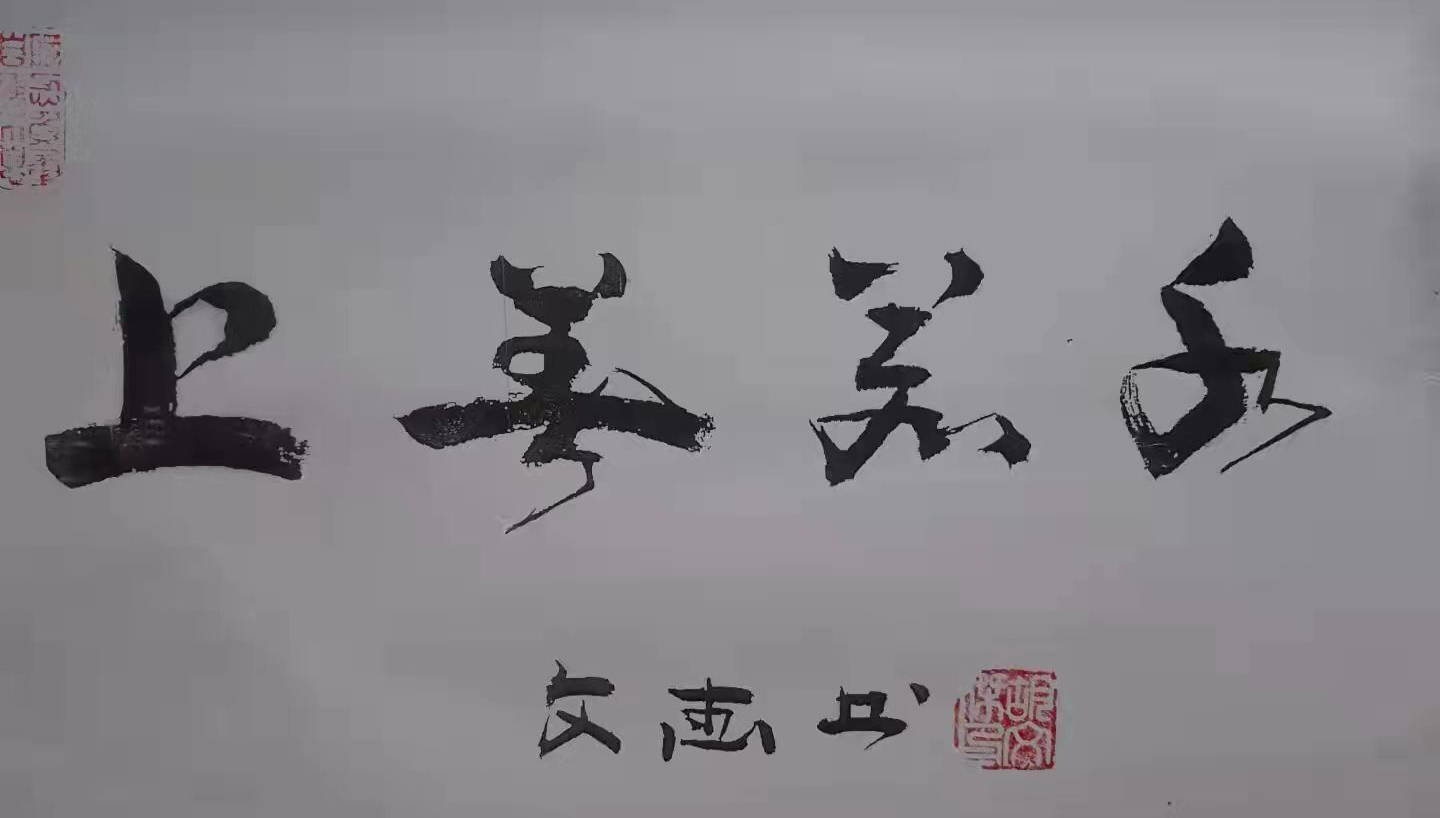 上善若水
文画书